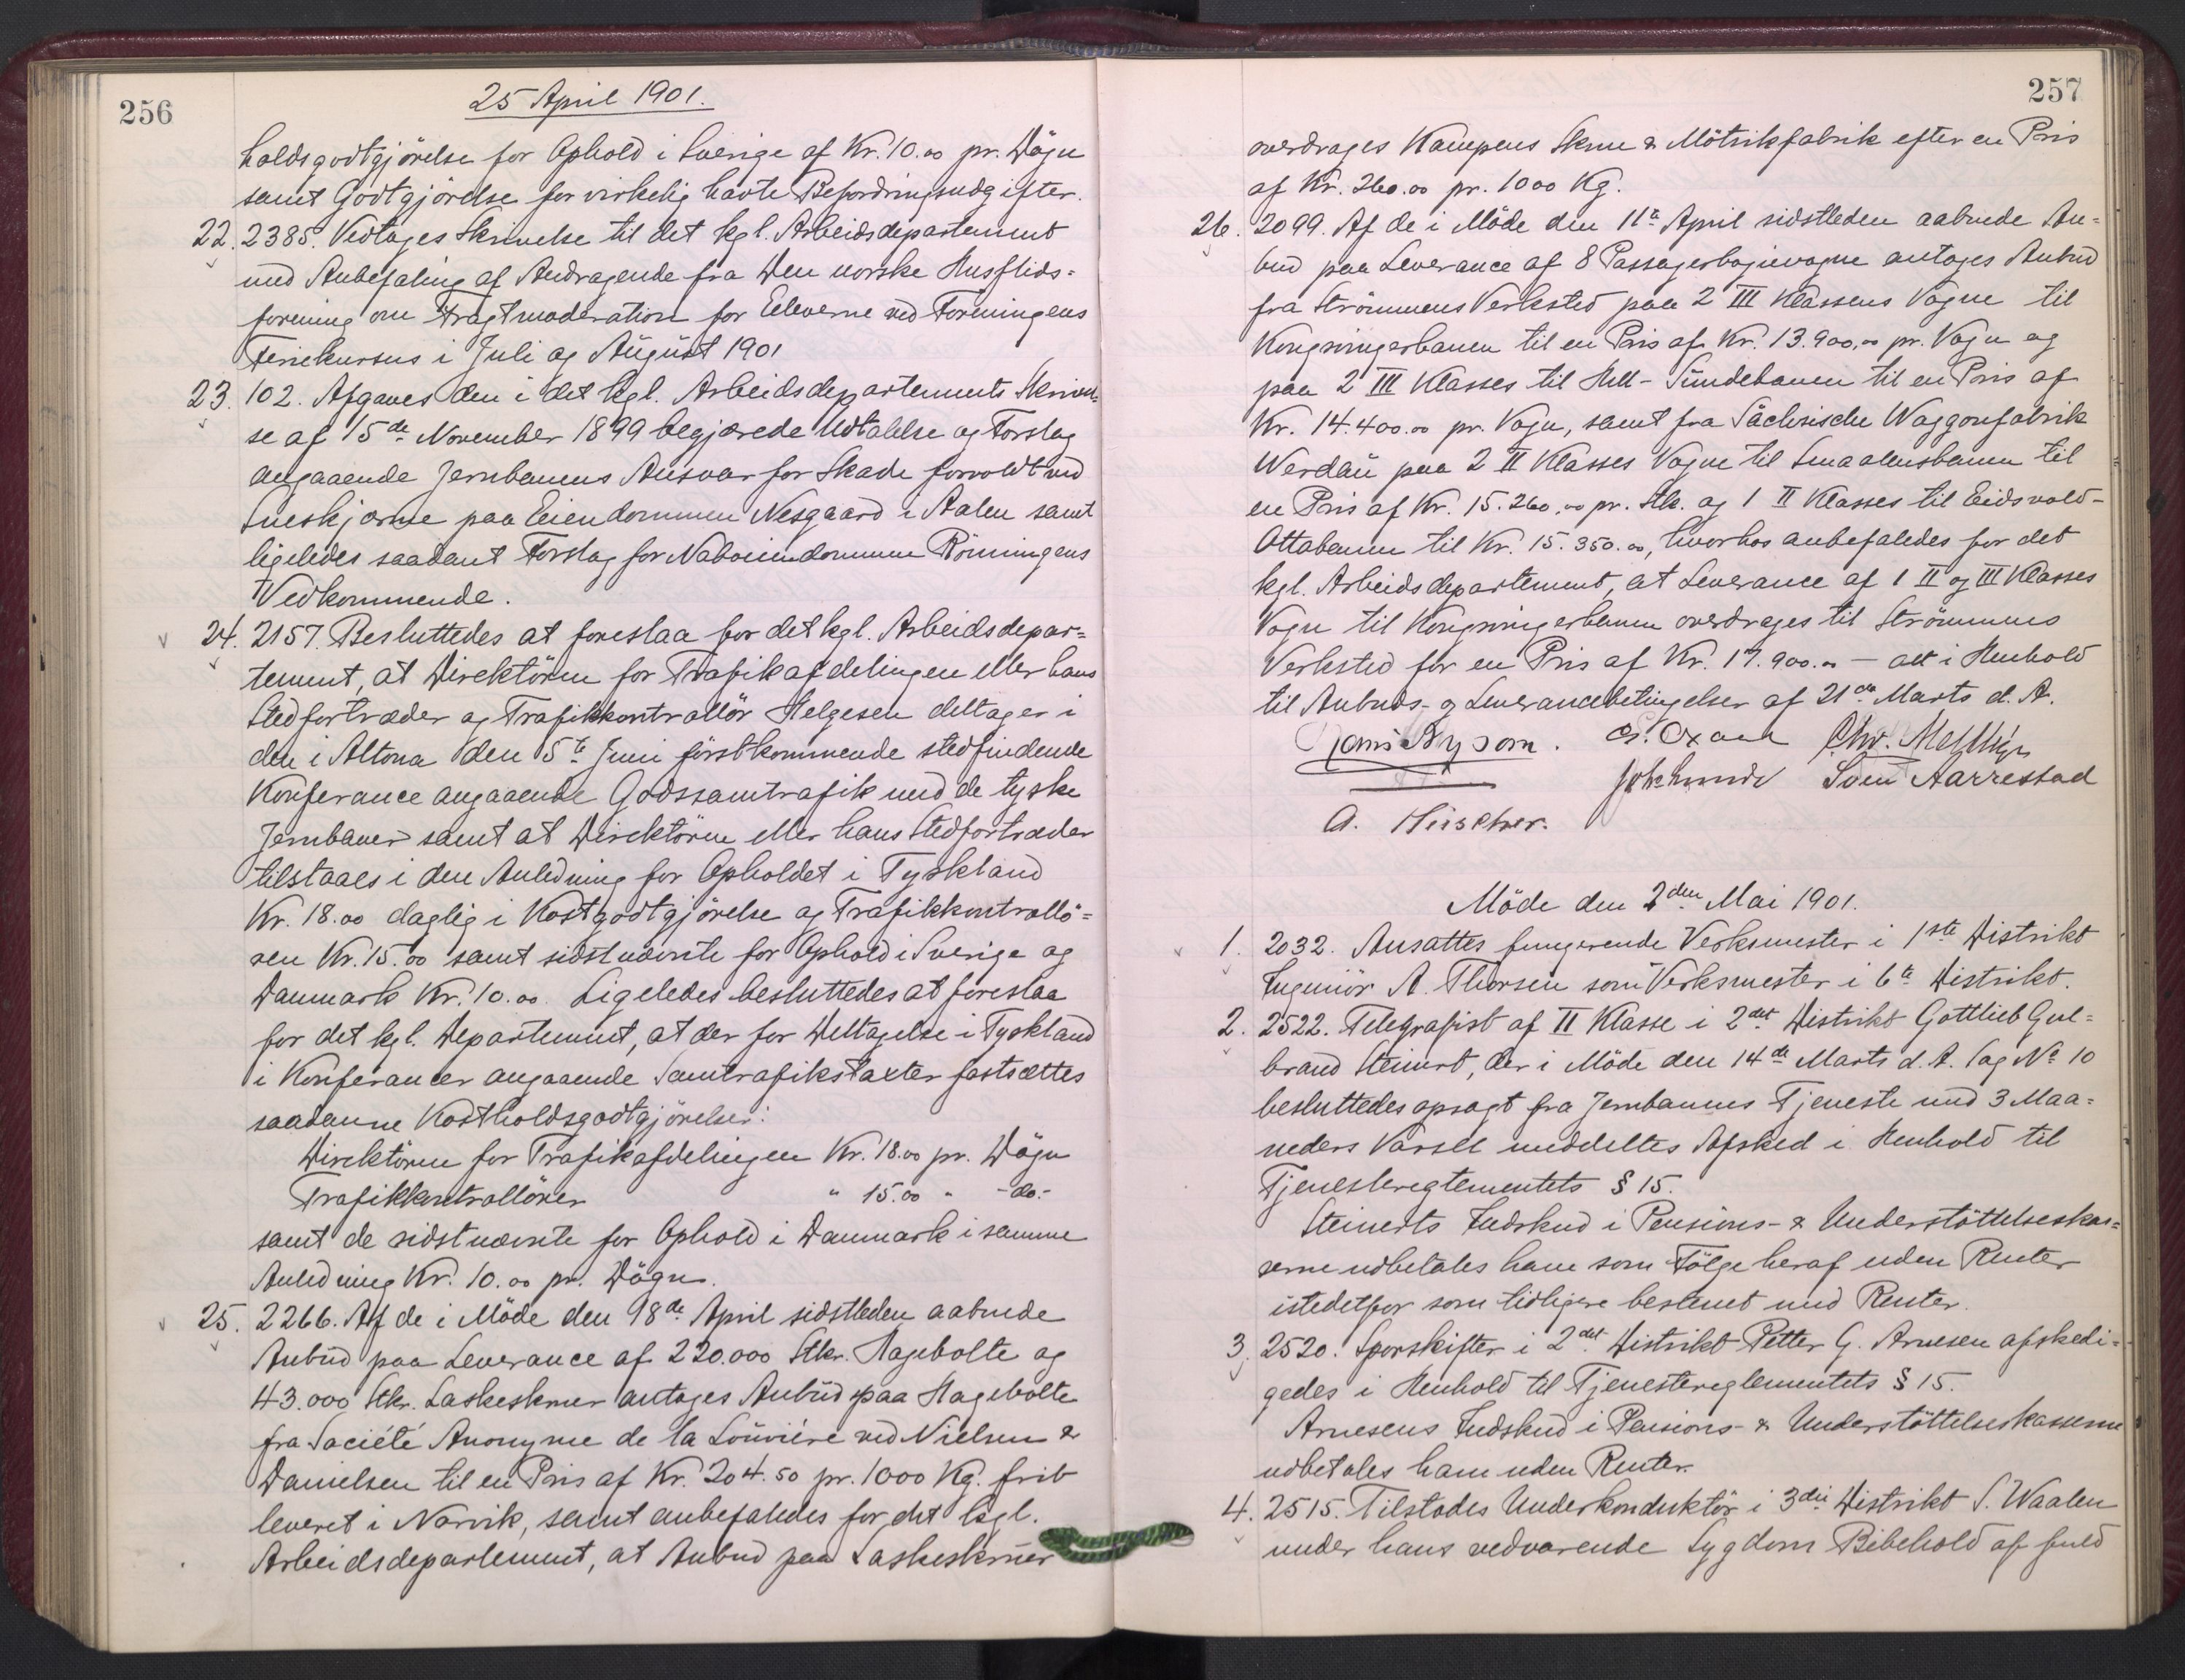 256
25 April 1901.
holdsgodtgjörelse for Ophold i Sverige af Kr. 10.00 pr. Dögn
samt Godtgjörelse for virkelig havte Befordringsudgifter.
22. 2385. Vedtoges Skrivelse til det kgl. Arbeidsdepartement
med Anbefaling af Andragende fra Den norske Husflids-
forening om Fragtmoderation for Eleverne ved Foreningens
Feriekursus i Juli og August 1901
23. 102. Afgaves den i det kgl. Arbeidsdepartements Skrivel-
se af 15de November 1899 begjærede Udtalelse og Forslag
angaaende Jernbanens Ansvar for Skade forvoldt ved
Sneskjærme paa Eiendommen Nesgaard i Aalen samt
ligeledes saadant Forslag for Naboeiendommen Rönningens
Vedkommende.
24. 2157. Besluttedes at foreslaa for det kgl. Arbeidsdepar-
tement, at Direktören for Trafikafdelingen eller hans
Stedfortræder og Trafikkontrollör Helgesen deltager i
den i Altona den 5te Juni förstkommende stedfindende
Konferance angaaende Godssamtrafik med de tyske
Jernbaner samt at Direktören eller hans Stedfortræder
tilstaaes i den Anledning for Opholdet i Tyskland
Kr. 18.00 daglig i Kostgodtgjörelse og Trafikkontrollö-
ren Kr. 15.00 samt sidstnævnte for Ophold i Sverige og
Danmark Kr. 10.00. Ligeledes besluttedes at foreslaa
for det kgl. Departement, at der for Deltagelse i Tyskland
i Konferancer angaaende Samtrafikstaxter fastsættes
saadanne Kostholdsgodtgjörelser:
Direktören for Trafikafdelingen Kr. 18.00 pr. Dögn
Trafikkontrollören " 15.00 " -do.-
samt de sidstnævnte for Ophold i Danmark i samme
Anledning Kr. 10.00 pr. Dögn.
25. 2266. Af de i Möde den 18de April sidstleden aabnede
Anbud paa Leverance af 220.000 Stkr. Hagebolte og
43.000 Stkr. Laskeskruer antoges Anbud paa Hagebolte
fra Société Anonyme de la Louviére ved Nielsen &
Danielsen til en Pris af Kr. 204.50 pr. 1000 Kg. frit
leveret i Narvik, samt anbefaledes for det kgl.
Arbeidsdepartement, at Anbud paa Laskeskruer
257
overdrages Kampens Skrue & Mötrikfabrik efter en Pris
af Kr. 260.00 pr. 1000 Kg.
26. 2099. Af de i Möde den 11te April sidstleden aabnede An-
bud paa Leverance af 8 Passagerbogievogne antoges Anbud
fra Strömmens Verksted paa 2 III Klassens Vogne til
Kongsvingerbanen til en Pris af Kr. 13.900.00 pr. Vogn og
paa 2 III Klasses til Hell-Sundebanen til en Pris af
Kr. 14.400.00 pr. Vogn, samt fra Sächsische Waggonfabrik
Werdau paa 2 II Klasses Vogne til Smaalensbanen til
en Pris af Kr. 15.260.00 pr. Stk. og 1 II Klasses til Eidsvold-
Ottabanen til Kr. 15.350.00, hvorhos anbefaledes for det
kgl. Arbeidsdepartement, at Leverance af 1 II og III Klasses
Vogn til Kongsvingerbanen overdrages til Strömmens
Verksted for en Pris af Kr. 17.900.00 – alt i Henhold
til Anbuds- og Leverancebetingelser af 21de Marts d. A.
Hans Nysom. Chr.
Svein Aarrestad
A.
Möde den 2den Mai 1901.
1. 2032. Ansattes fungerende Verksmester i 1ste Distrikt
Ingeniör A. Thorsen som Verksmester i 6te Distrikt.
2. 2522. Telegrafist af II Klasse i 2det Distrikt Gottlieb Gul-
brand Steinert, der i Möde den 14de Marts d. A. Sag No 10
besluttedes opsagt fra Jernbanens Tjeneste med 3 Maa-
neders Varsel meddeltes Afsked i Henhold til
Tjenestereglementets § 15.
Steinerts Indskud i Pensions- & Understöttelseskas-
serne udbetales ham som Fölge heraf uden Renter
istedetfor som tidligere bestemt med Renter.
3. 2520. Sporskifter i 2det Distrikt Petter G. Arnesen afskedi-
gedes i Henhold til Tjenestereglementets § 15.
Arnesens Indskud i Pensions- & Understöttelseskasserne
udbetales ham uden Renter.
4. 2515. Tilstodes Underkonduktör i 3die Distrikt S. Waalen
under hans vedvarende Sygdom Bibehold af fuld